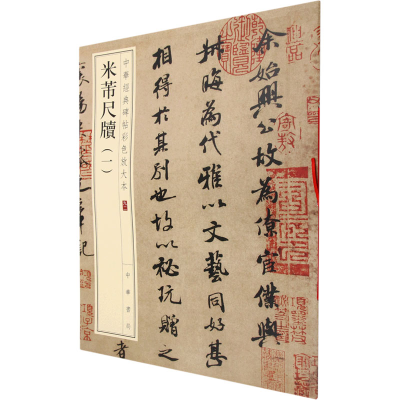 余始興公故為僚宦僕與
叔晦為代雅以文藝同好甚
相得於其別也故以秘玩贈之
者
中華經典碑帖彩色放大本
中華書局
米芾尺牘(一)